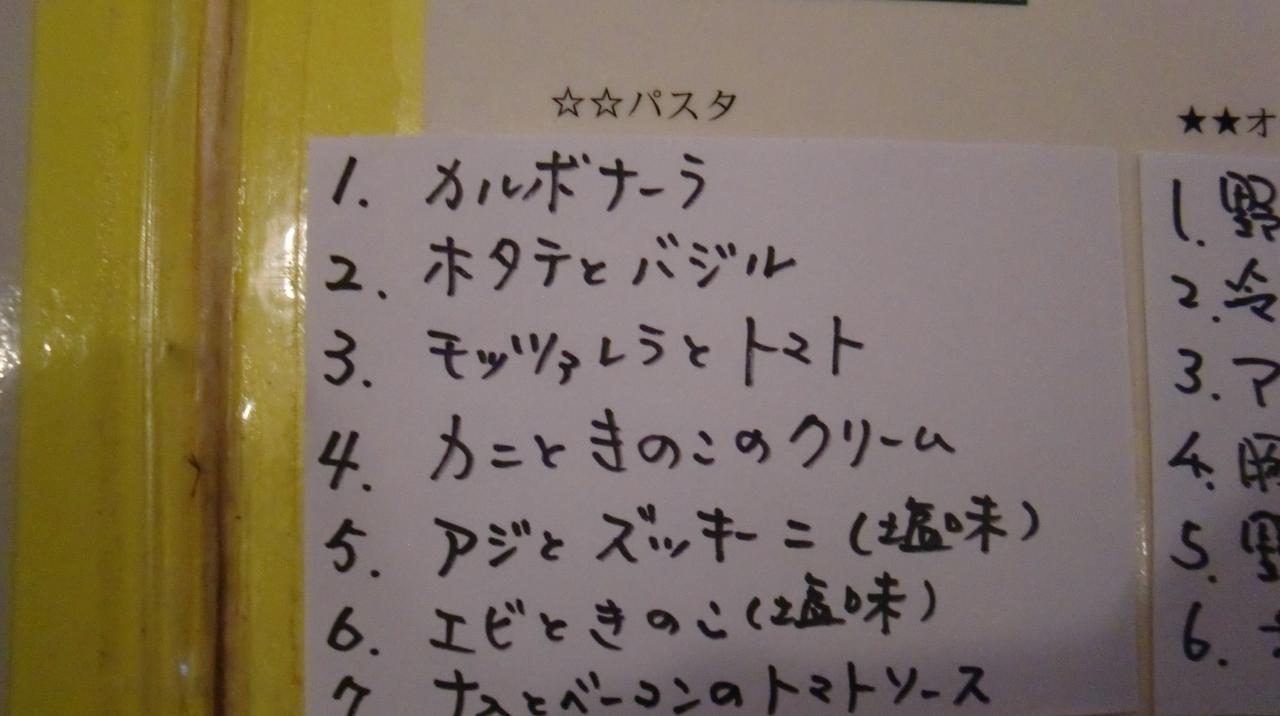 ☆☆パスタ
1. カルボナーラ
2. ホタテとバジル
3. モッツァレラとトマト
4. カニときのこのクリーム
5. アジとズッキーニ(塩味)
6. エビときのこ(塩味)
7 ナスとベーコンのトマトソース
★★オ
1. 野
2. 冷
3. ア
4. 豚
5. 野
6.